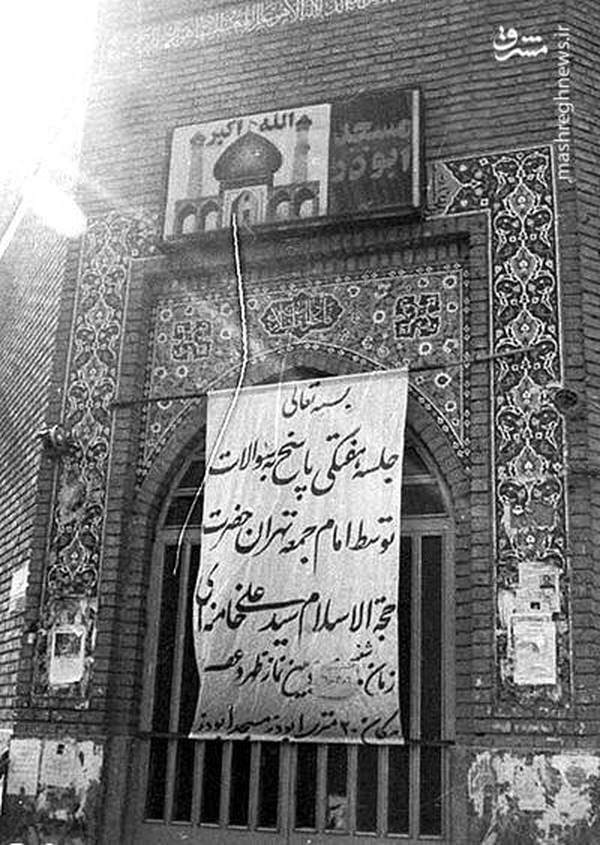 مشرق
mashreghnews.ir
الله اکبر
مسجد
ابوذر
بسمه تعالی
جلسه هفتگی پاسخ بسوالات
توسط امام جمعه تهران حضرت
حجة الاسلام سید علی خامنه ای
زمان: شنبه بین نماز ظهر و عصر
مکان: ۲۰ متری ابوذر مسجد ابوذر